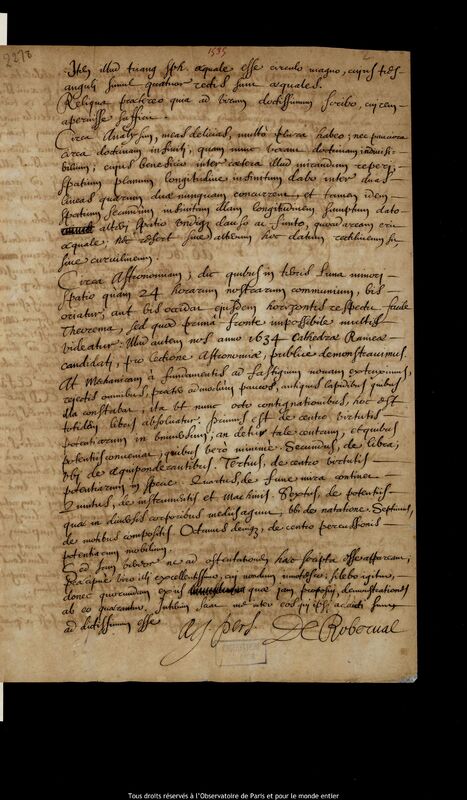 2278
1535
Item illud triang. sph. æquale esse circulo magno, cujus tres
anguli simul quatuor rectis sunt æquales.
Reliqua prætereo quia ad virum doctissimum scribo, cui rem
aperuisse sufficit.
Circa Analysim, meas delicias, multo plura habeo; nec pauciora
circa doctrinam infiniti, quam nunc veram doctrinam indivisi-
bilium; cujus beneficio inter cætera illud mirandum reperi;
spatium planum longitudine infinitum dabo inter duas
lineas quarum duæ nunquam concurrent, et tamen idem
spatium secundum infinitam illam longitudinem sumptum dato
alteri spatio undique clauso ac finito, quoad aream erit
æquale; nec refert sive alterum hoc datum rectilineum sit
sive curvilineum.
Circa Astronomiam; dic quibus in terris Luna minori
spatio quam 24 horarum nostrarum communium, bis
oriatur, aut bis occidat ejusdem horizontis respectu facile
Theorema, sed quod prima fronte impossibile multis
videatur. Illud autem nos anno 1634 Cathedræ Rameæ
candidati, pro lectione Astronomiæ, publice demonstravimus.
At Mechanicam à fundamentis ad fastigium novam extruximus,
rejectis omnibus, præter admodum paucos, antiquis lapidibus quibus
illa constabat, ita ut nunc octo contignationibus, hoc est
totidem libris absolvatur. Primus est de centro virtutis
potentiarum in universum, an detur tale centrum, et quibus
potentiis conveniat, quibus vero minime. Secundus, de libra,
ubi de æquiponderantibus. Tertius, de centro virtutis
potentiarum in specie. Quartus, de fune mira continet.
Quintus, de instrumentis et Machinis. Sextus, de potentiis
quæ in diversis corporibus mediis agunt, ubi de natatione. Septimus,
de motibus compositis. Octavus denique, de centro percussionis
potentiarum mobilium.
Sed jam vereor ne ad ostentationem hæc scripta esse appareant,
præcipue viro illi excellentissimo, cui nondum innotesco; silebo igitur,
donec quorundam ex iis quæ jam proposui, demonstrationes
ab eo quærantur. Interim sat me inter eos qui ipsi
ad dictissimum esse
Æg. Pers. De Roberual
Tous droits réservés à l'Observatoire de Paris et pour le monde entier